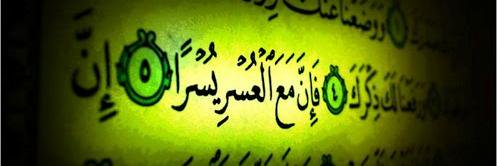 وَوَضَعْنَا عَنكَ
وَرَفَعْنَا لَكَ ذِكْرَكَ ٤ فَإِنَّ مَعَ ٱلْعُسْرِ يُسْرًا ٥ إِنَّ